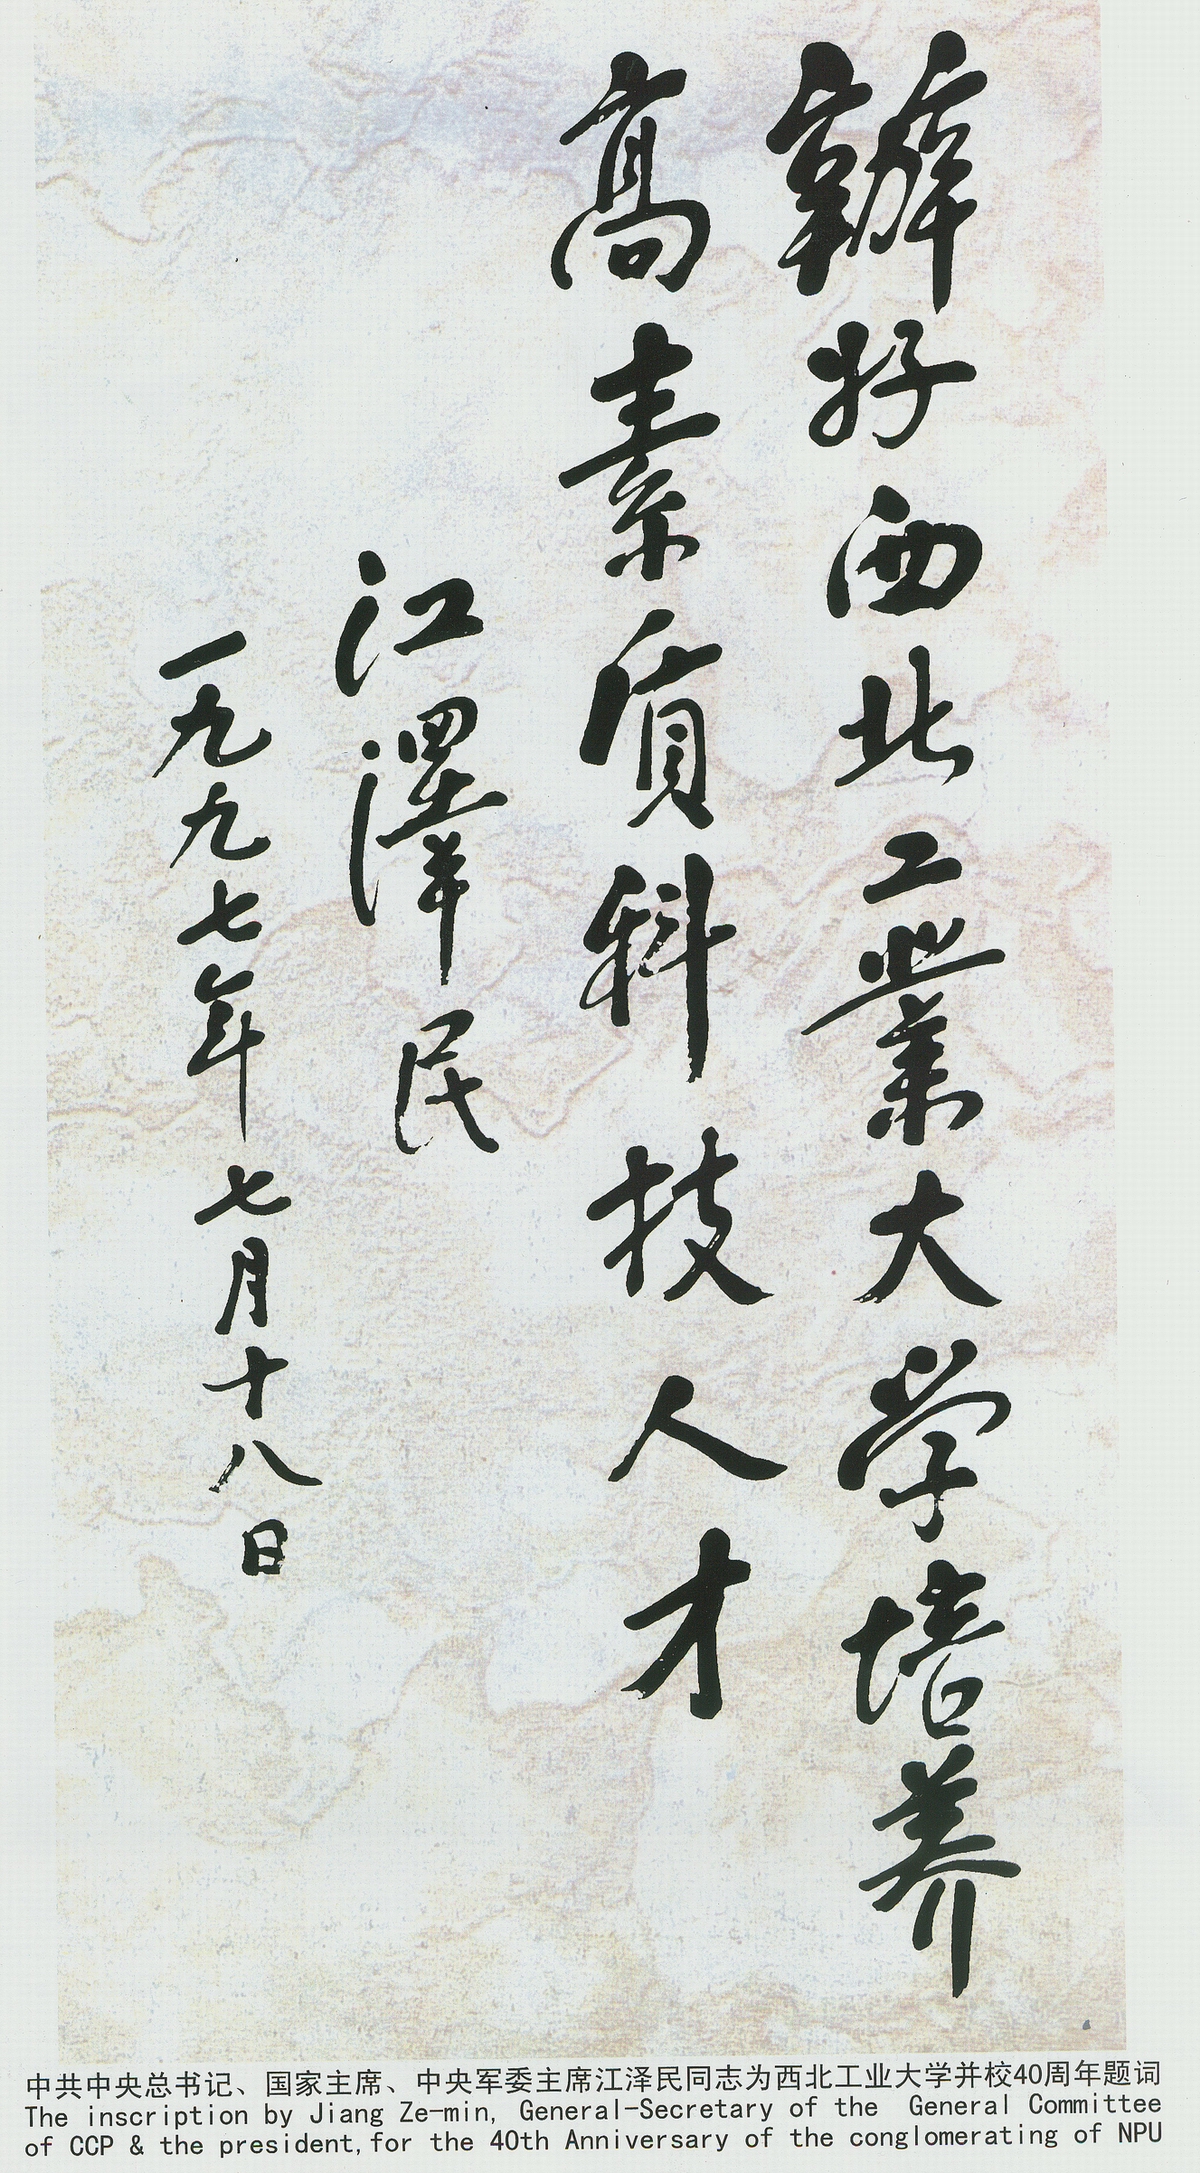 辦好西北工業大学培养
高素质科技人才
江澤民
一九九七年七月十八日
中共中央总书记、国家主席、中央军委主席江泽民同志为西北工业大学并校40周年题词
The inscription by Jiang Ze-min, General-Secretary of the General Committee
of CCP & the president,for the 40th Anniversary of the conglomerating of NPU